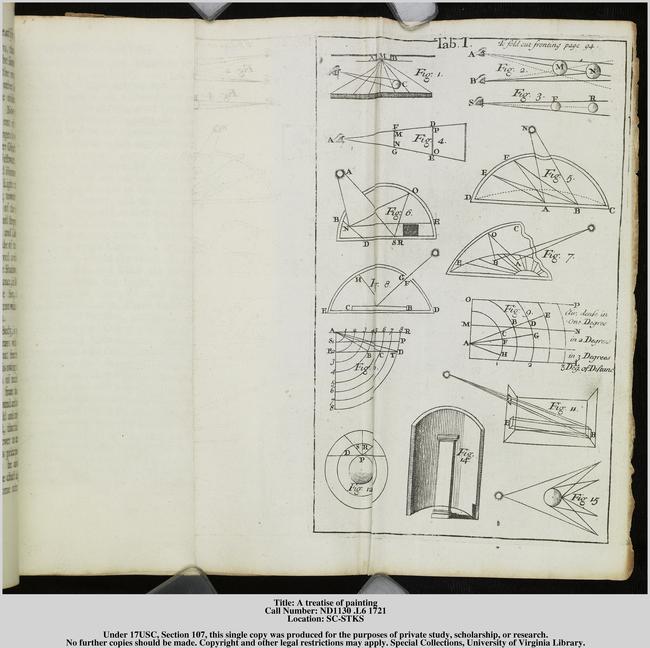 Tab. I. To fold out fronting page 94.
A M B
Fig. 1.
C
A
Fig. 2. M N
B
S Fig. 3. F R
A F D
M P
Fig. 4.
N
G O
E
N
F
E Fig. 5.
D A B C
A
O
B N Fig. 6. E
D S R
O C
Fig. 7.
M G
F
8.
E C B D
O P
Fig. 9. E Air, dense in
One Degree
M B D
C G N
in 2 Degrees
A F
H in 3 Degrees
1 2 3 Deg. of Distance
A 1 2 3 4 5 6 7 8 R
S P
E B C T D
Fig.
Fig. 11.
S R
D
P
Fig. 12
Fig.
14
Fig. 15
Title: A treatise of painting
Call Number: ND1130 .L6 1721
Location: SC-STKS
Under 17USC, Section 107, this single copy was produced for the purposes of private study, scholarship, or research.
No further copies should be made. Copyright and other legal restrictions may apply. Special Collections, University of Virginia Library.